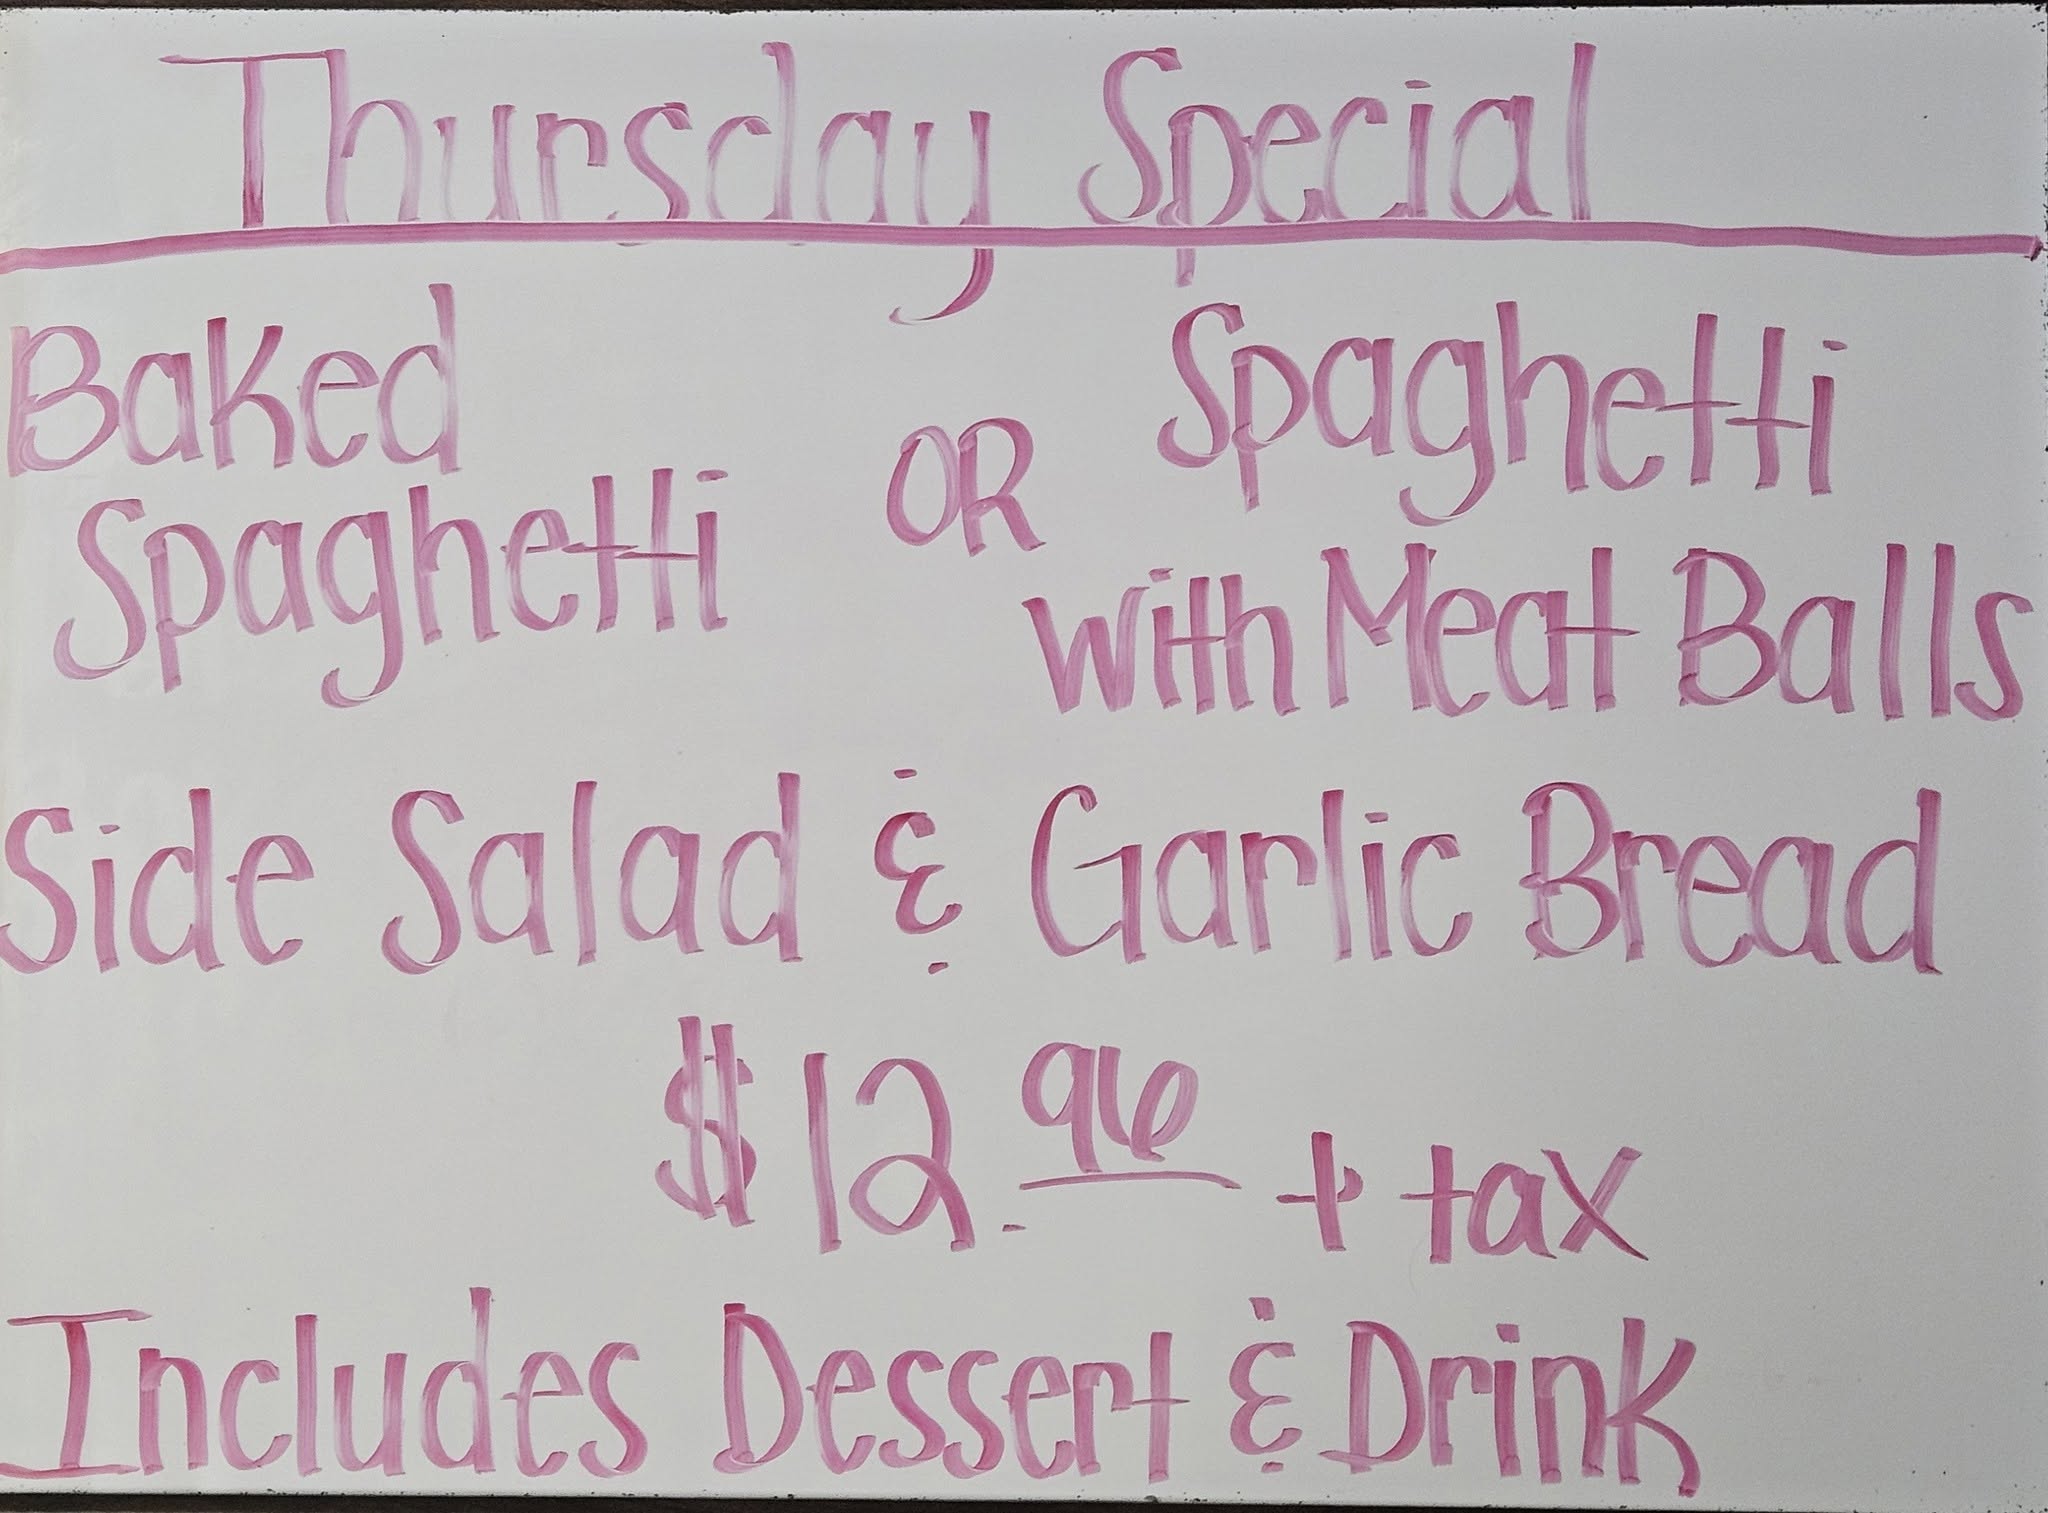 Thursday Special
Baked Spaghetti
OR
Spaghetti with Meat Balls
Side Salad & Garlic Bread
$12.96 + tax
Includes Dessert & Drink